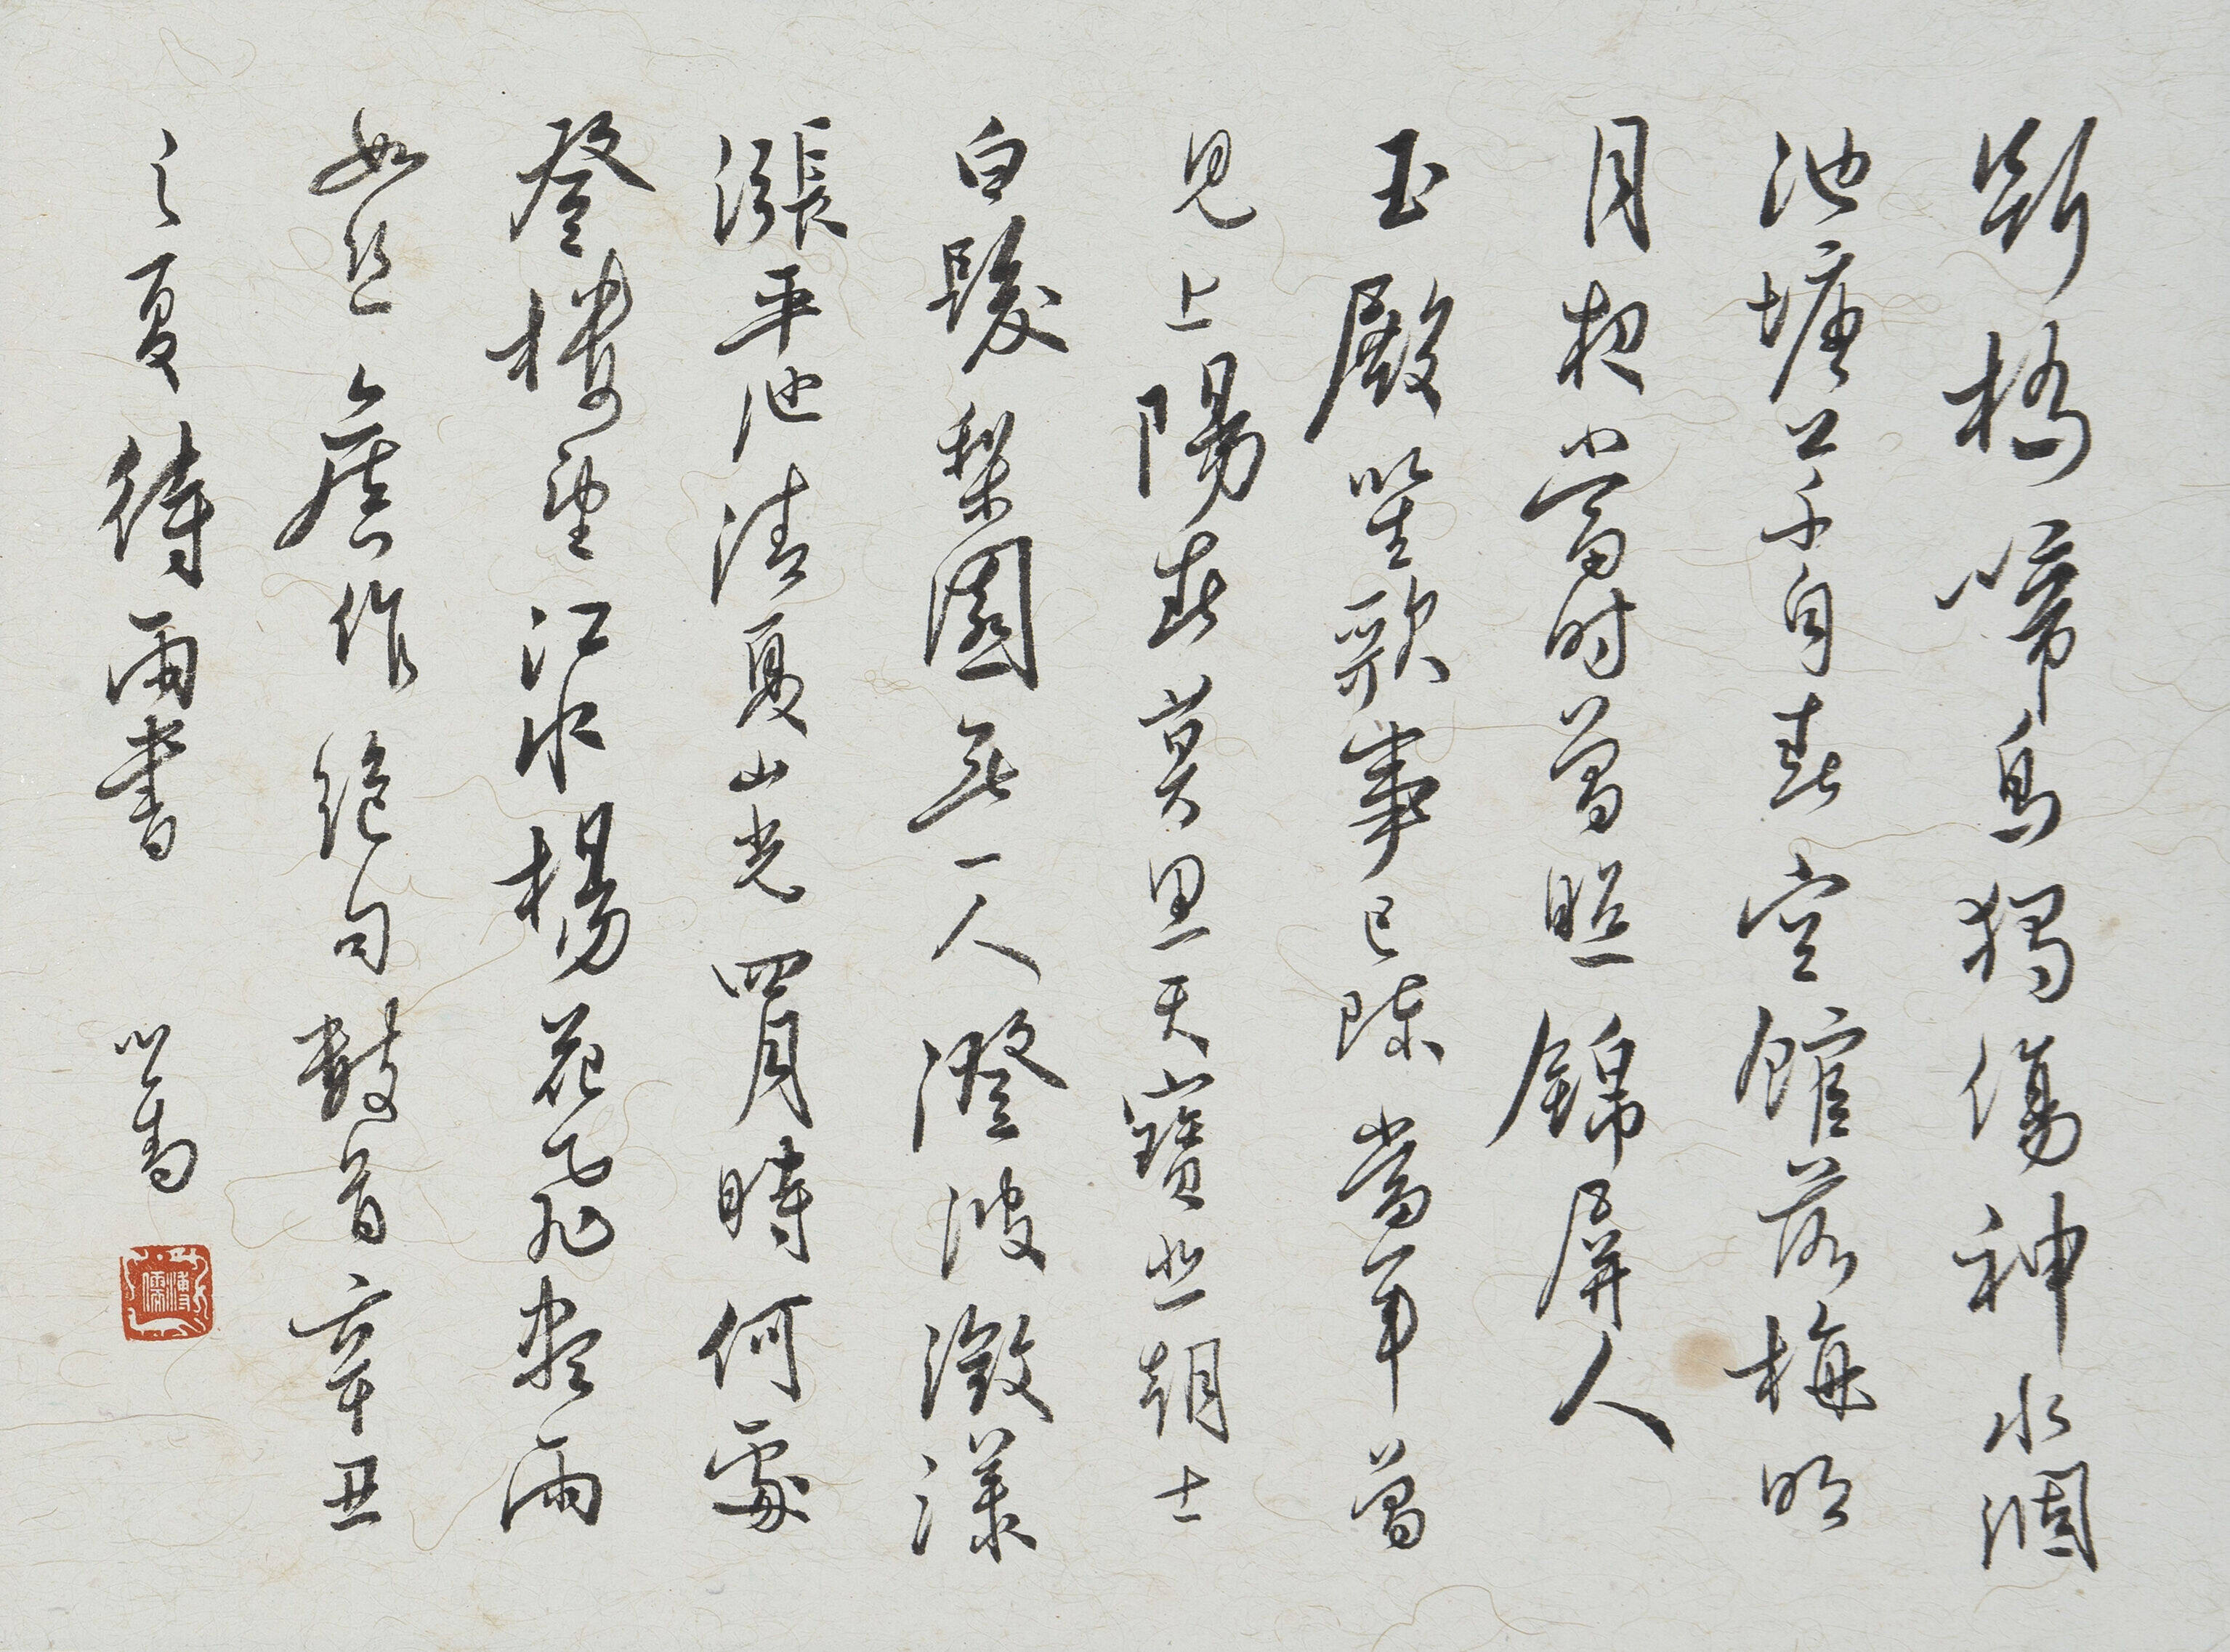 斷橋啼鳥獨傷神水涸
池塘草自春空館落梅明
月夜當時曾照錦屏人
玉殿笙歌事已陳當年曾
見上陽春莫思天寶悲朝士
白髮梨園無一人澄波瀲漾
漲平池清夏山光四月時何處
登樓望江水楊花飛盡雨
如絲舊作絕句數首辛丑
之夏待雨書 心畬
溥儒